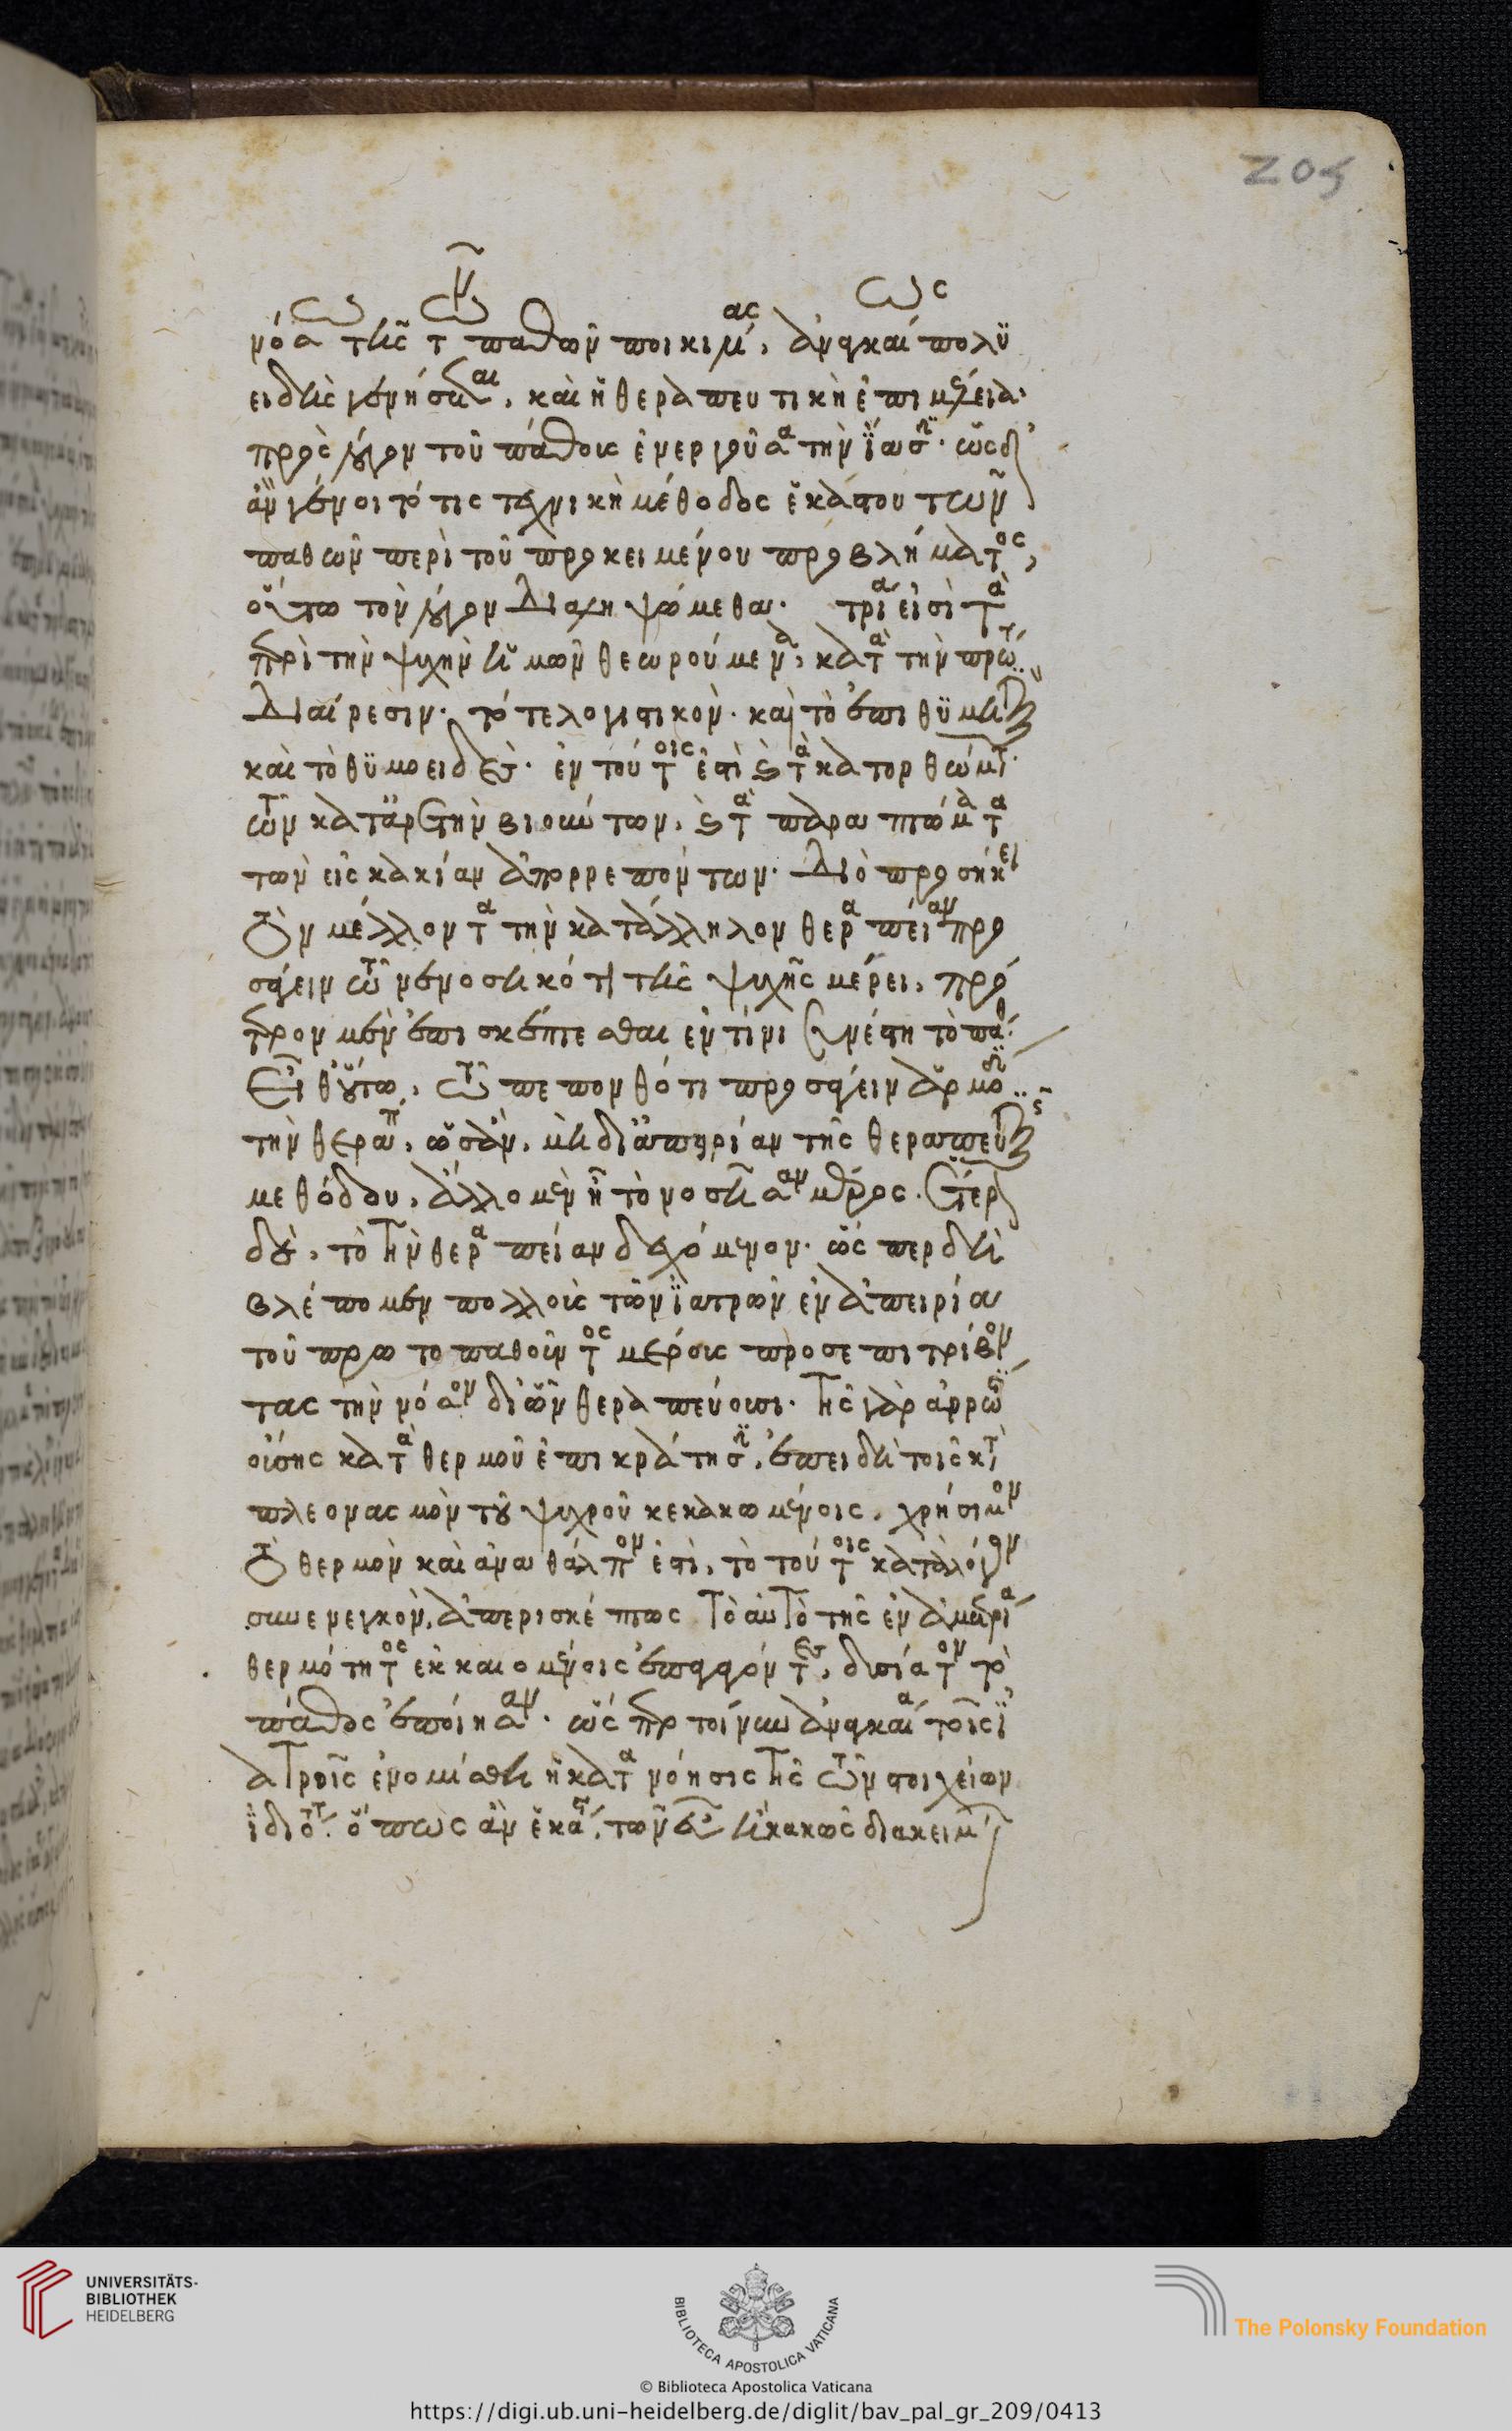 νόσω τῆς τῶν παθῶν ποικιλίας, ἀναγκαίως πολυ
ειδὴς γενήσεται, καὶ ἡ θεραπευτικὴ ἐπιμέλεια·
πρὸς λόγον τοῦ πάθους ἐνεργοῦσα τὴν ἴασιν. ὡς δ᾽
ἂν γένοιτό τις τεχνικὴ μέθοδος ἑκάστου τῶν
παθῶν περὶ τοῦ προκειμένου προβλήματος,
οὕτω τὸν λόγον διαληψόμεθα. τρία εἰσὶ τὰ
περὶ τὴν ψυχὴν ἡμῶν θεωρούμενα, κατὰ τὴν πρώτην
διαίρεσιν· τό τε λογιστικόν· καὶ τὸ ἐπιθυμητικὸν
καὶ τὸ θυμοειδές· ἐν τούτοις ἐστὶ καὶ τὰ κατορθώματα
τῶν κατ᾽ ἀρετὴν βιούντων, καὶ τὰ παραπτώματα
τῶν εἰς κακίαν ἀπορρεπόντων. διὸ προσήκει
τὸν μέλλοντα τὴν κατάλληλον θεραπείαν προ
σάγειν τῶ νενοσηκότι τῆς ψυχῆς μέρει, πρό
τερον μὲν ἐπισκέπτεσθαι ἐν τίνι συνέστη τὸ πάθος
εἶθ᾽ οὕτω, τῶ πεπονθότι προσάγειν ἁρμοζόντως
τὴν θεραπείαν, ὡς ἂν, μὴ δι᾽ ἀπειρίαν τῆς θεραπευτικῆς
μεθόδου, ἄλλο μὲν ῇ τὸ νοσῆσαν μέρος. ἕτερον
δὲ, τὸ τὴν θεραπείαν δεχόμενον. ὥσπερ δὴ
βλέπομεν πολλοὺς τῶν ἰατρῶν ἐν ἀπειρία
τοῦ πρωτοπαθοῦντος μέρους προσεπιτρίβον
τας τὴν νόσον δι᾽ ὧν θεραπεύουσι. τῆς γὰρ ἀρρω
στίσης κατὰ θερμοῦ ἐπικράτησιν, ἐπειδὴ τοῖς κατὰ
πλεονασμὸν τοῦ ψυχροῦ κεκακωμένοις, χρήσιμον
τὸ θερμὸν καὶ ἀναθάλπον ἐστὶ, τὸ τούτοις κατὰ λόγον
συνενεγκὸν, ἀπερισκέπτως τὸ αὐτὸ τῆς ἐν ἀμετρία
θερμότητος ἐκκαιομένοις ἐπαγαγόντες, δυσίατον τὸ
πάθος ἐποίησαν. ὥσπερ τοίνυν ἀναγκαία τοῖς ἰ
ατροῖς ἐνομίσθη ἡ κατανόησις τῆς τῶν στοιχείων
ἰδιότητος ὅπως ἂν ἑκάστου τῶν εὖ ἢ κακῶς διακειμένων
205
UNIVERSITÄTS-
BIBLIOTHEK
HEIDELBERG
BIBLIOTECA APOSTOLICA VATICANA
The Polonsky Foundation
© Biblioteca Apostolica Vaticana
https://digi.ub.uni-heidelberg.de/diglit/bav_pal_gr_209/0413